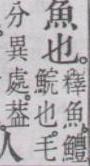 魚也釋魚鱧
鯇也毛
分異處葢人